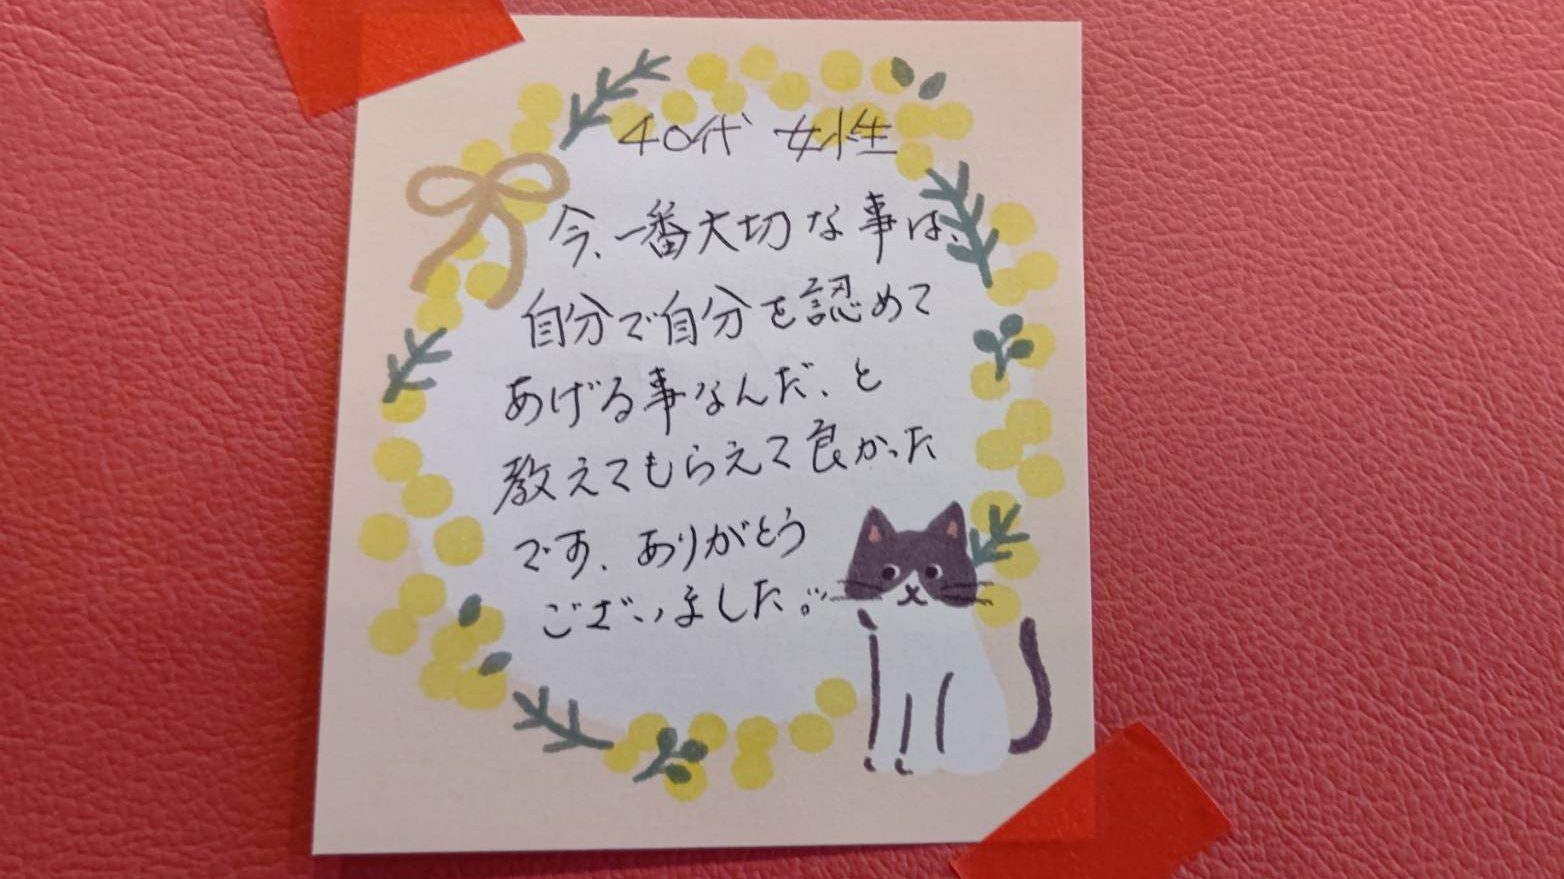 40代 女性
今、一番大切な事は、
自分で自分を認めて
あげる事なんだ、と
教えてもらえて良かった
です、ありがとう
ございました。